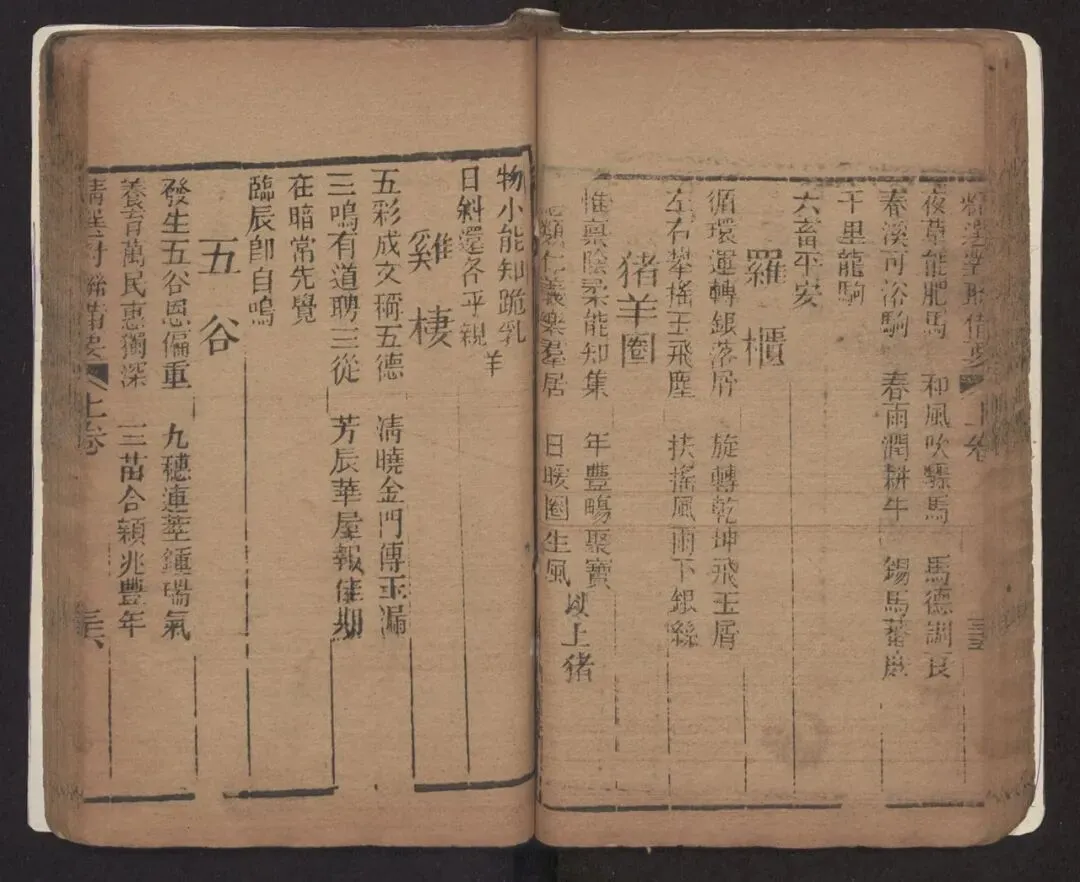 精選對聯備要 上卷
夜草能肥馬 和風吹驟馬 馬德訓良
春溪可浴駒 春雨潤耕牛 錫馬蕃庶
千里龍駒
六畜平安
羅櫃
循環運轉銀落屑 旋轉乾坤飛玉屑
左右攀搖玉飛塵 扶搖風雨下銀絲
猪羊圈
惟稟陰柔能知集 年豐暢聚寶
類仁義樂羣居 日暖圈生風 以上猪
物小能知跪乳
日斜還各平親 羊
雞棲
五彩成文稱五德 清曉金門傳玉漏
三鳴有道聘三從 芳辰華屋報佳期
在暗常先覺
臨辰卽自鳴
五谷
發生五谷恩偏重 九穗連莖鍾瑞氣
養育萬民惠獨深 三苗合穎兆豐年
精選對聯備要 上卷